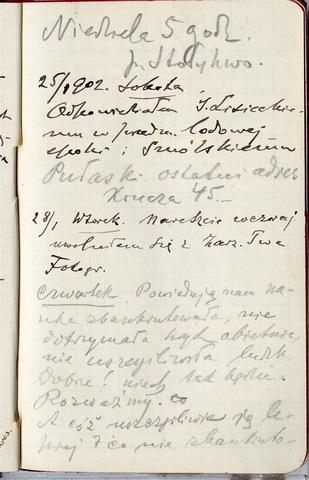 Niedziela 5 godz.
p. Stołyhwo.
25/I 902. Sobota.
Odpowiedziałem J. Lisieckie-
mu w przedm. lodowej
epoki i Smólskiemu
Pułaski ostatni adres
Krucza 45.–
28/I, Wtorek. Nareszcie wczoraj
uwolniłem się z Zarz. Twa
Fotogr.
Czwartek. Powiedują nam na-
uka zbankrutowała, nie
dotrzymała swych obietnic,
nie uszczęśliwiła ludzk.
Dobrze! niech tak będzie.
Rozważmy.
A cóż uszczęśliwia się le-
piej i co nie zbankruto-